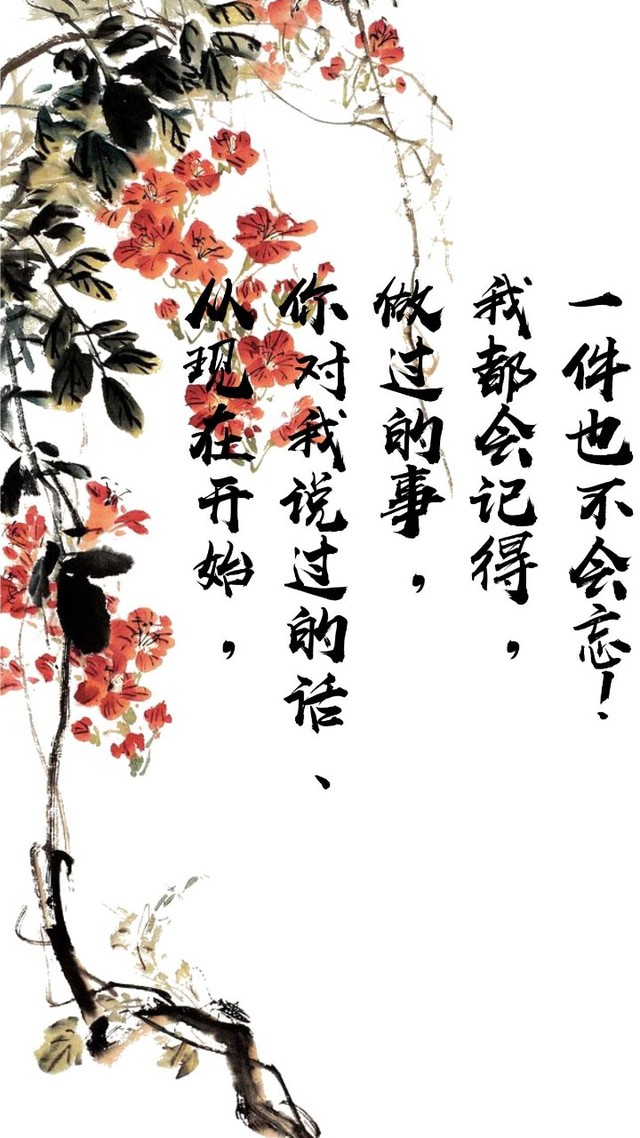 从现在开始，
你对我说过的话、
做过的事，
我都会记得，
一件也不会忘！